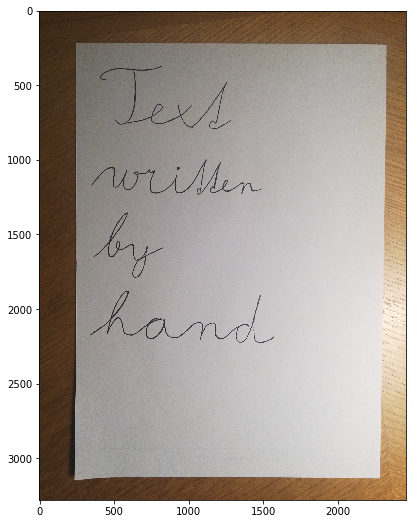 Text
written
by
hand
0
500
1000
1500
2000
2500
3000
0
500
1000
1500
2000